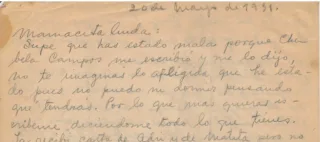 20 de Mayo de 1931.
Mamacita linda:
Supe que has estado mala porque Cha
bela Campos me escribió y me lo dijo,
no te imaginas lo afligida que he esta-
do pues no puedo ni dormir pensando
que tendras. Por lo que mas quieras es-
cribeme diciendome todo lo que tienes.
carta de y de Matita pero no